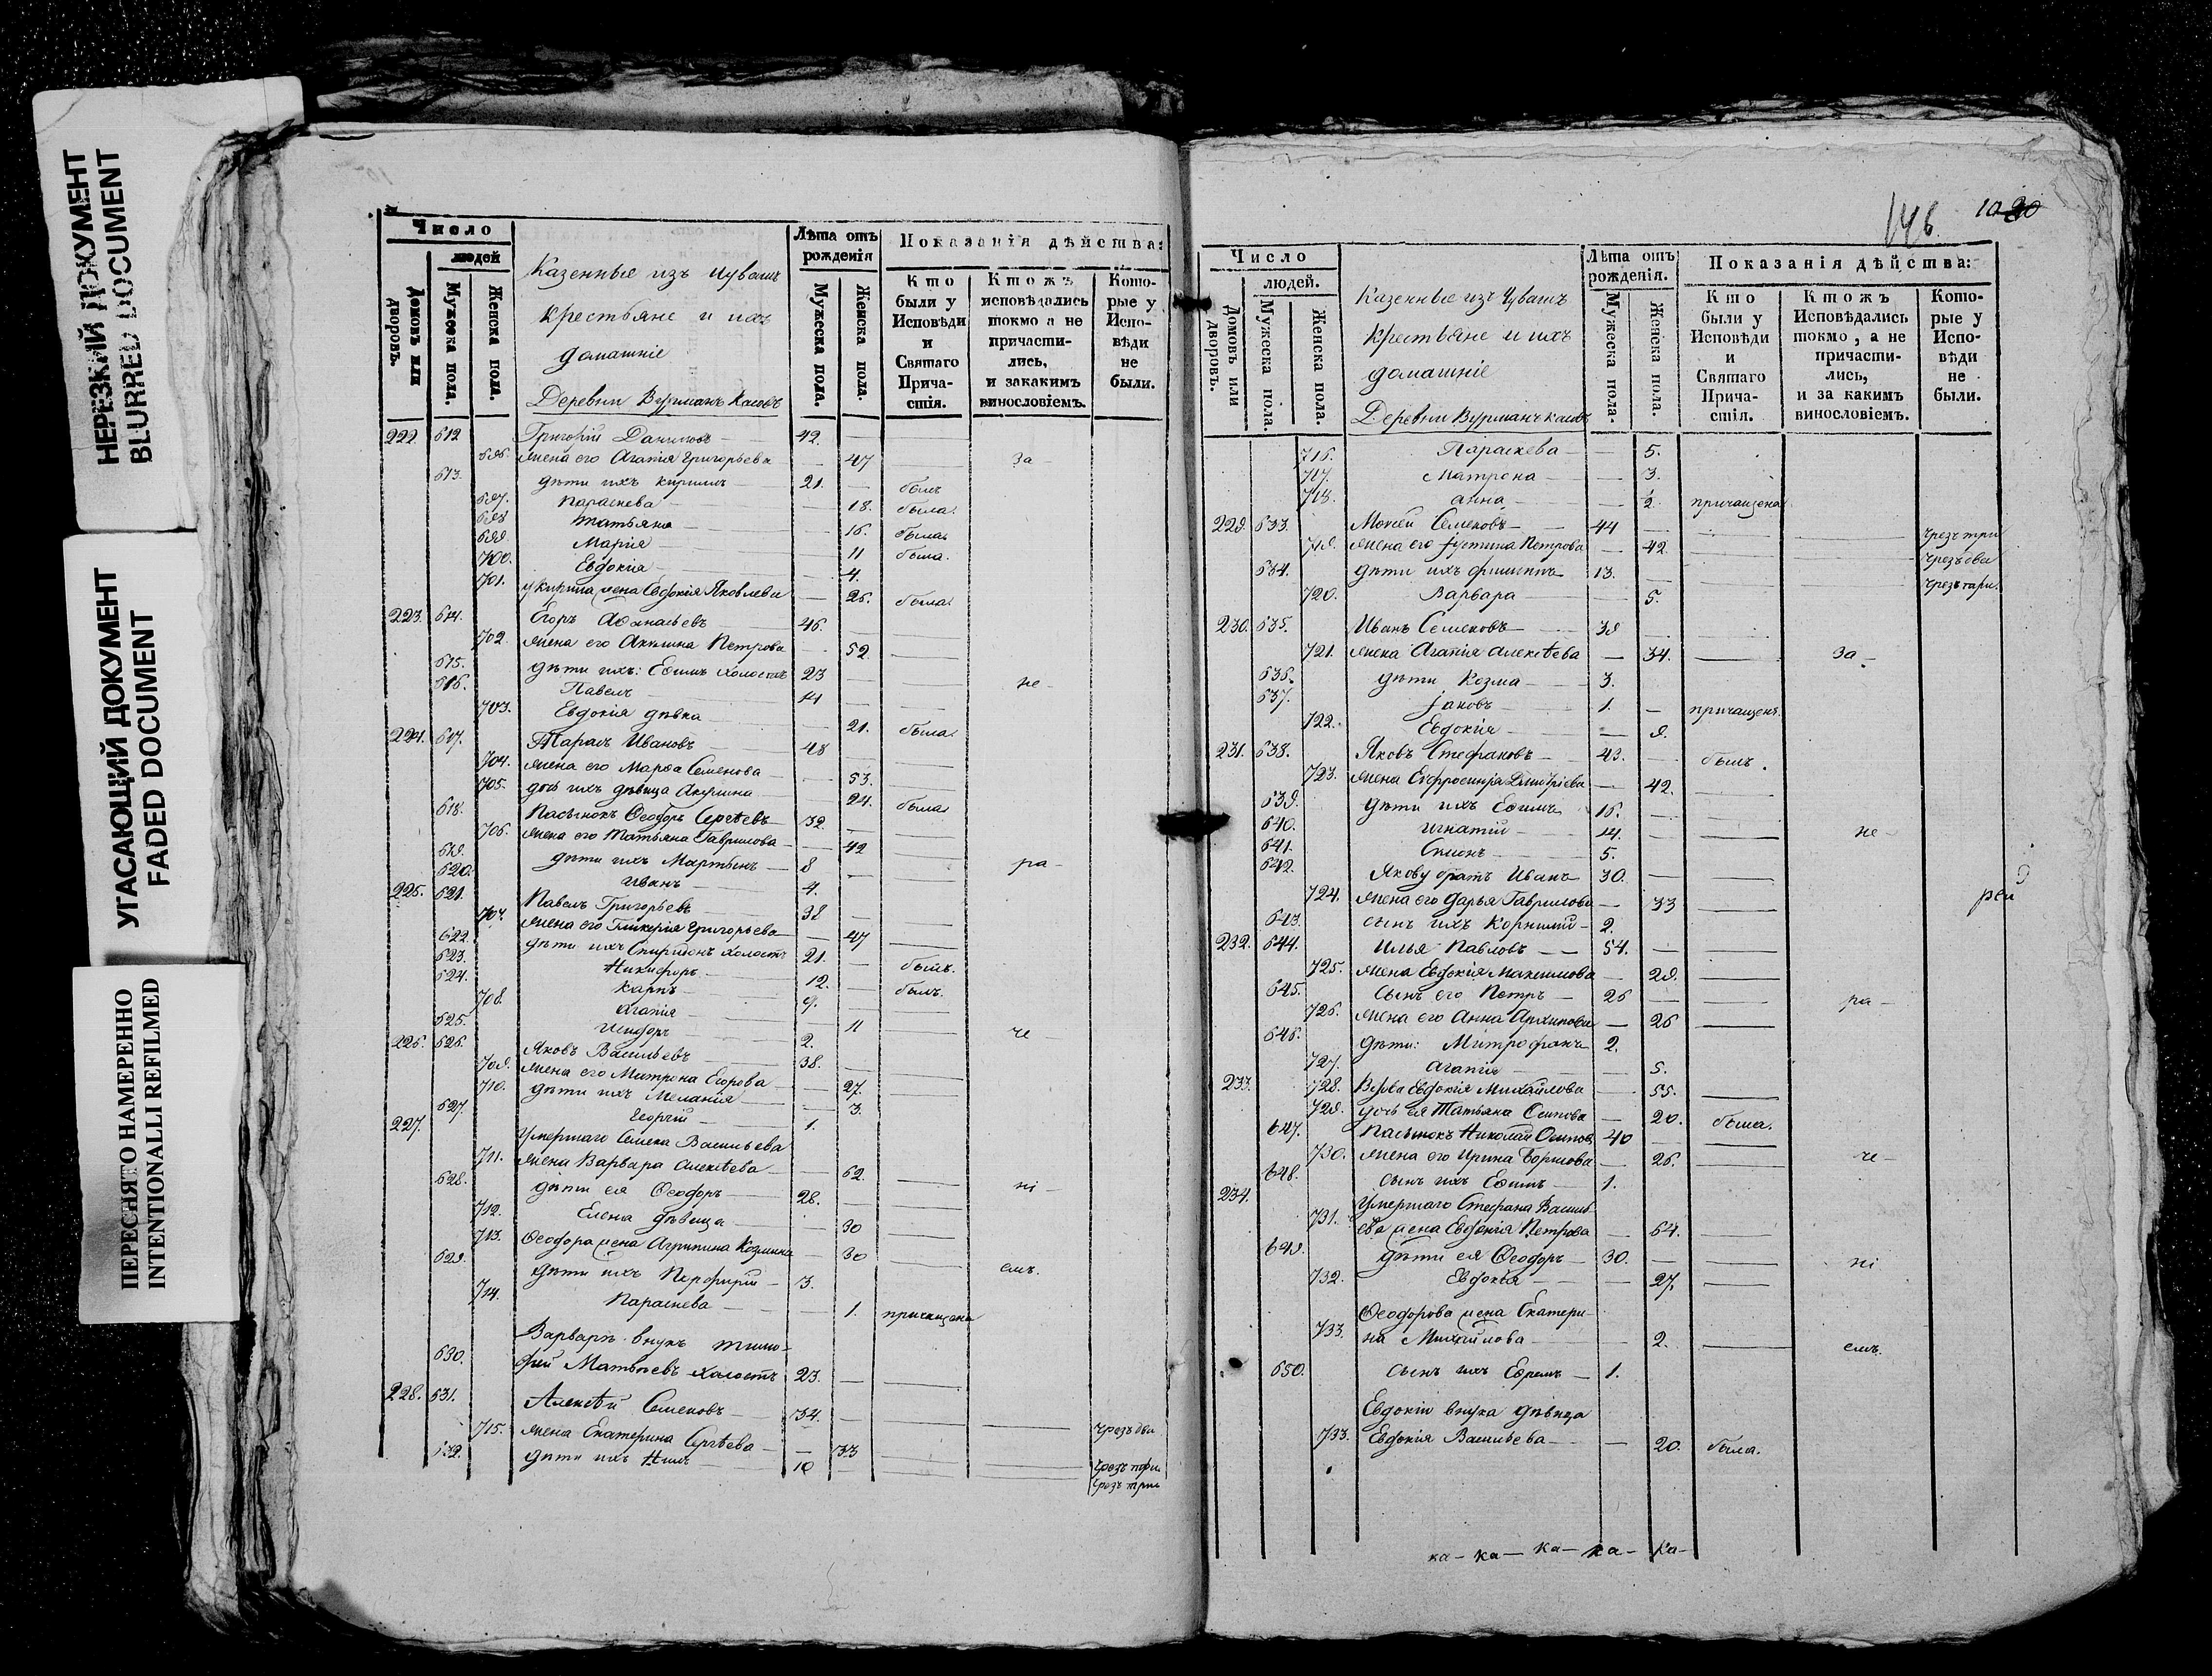 НЕРЕЗКИЙ ДОКУМЕНТ
BLURRED DOCUMENT
УГАСАЮЩИЙ ДОКУМЕНТ
FADED DOCUMENT
ПЕРЕСНЯТО НАМЕРЕННО
INTENTIONALLI REFILMED
Число
людей
Домовъ или дворовъ.
Мужеска пола.
Женска пола.
Казенные изъ чувашъ
крестьяне и ихъ
домашніе
Деревни Вурманъ Касовъ
Лѣта отъ рожденія
Мужеска пола.
Женска пола.
Показанія дѣйства:
Кто были у Исповѣди и Святаго Причастія.
Ктожъ исповѣдались токмо а не причастились, и закакимъ винословіемъ.
Которые у Исповѣди не были.
222 612 Григорій Даниловъ 42
696. жена его Агапія Григорьева 47 за
613. дѣти ихъ Кириллъ 21. былъ
697. Параскева 18. была.
698 Татьяна 16. была
699. Марія 11 была.
700. Евдокія 4.
701. у Кирила жена Евдокія Яковлева 26. была
223. 614. Егоръ Аѳанасьевъ 46.
702. жена его Акилина Петрова 52
615. дѣти ихъ: Ефимъ холостъ 23 не
616. Павелъ 14
703. Евдокія дѣвка 21. была
224. 617. Тарасъ Ивановъ 48
704. жена его Марѳа Семенова 53.
705. дочь ихъ дѣвица Акулина 24. была
618. Пасынокъ Ѳеодоръ Сергѣевъ 32
706. жена его Татьяна Гаврилова 42
619. дѣти ихъ Мартынъ 8 ра
620. Иванъ 4.
225. 621. Павелъ Григорьевъ 38
707 жена его Гликерія Григорьева 47
622. дѣти ихъ Спиридонъ холостъ 21. былъ.
623. Никифоръ 12. былъ.
624. Карпъ 9.
708. Агапія 11 че
625. Исидоръ 2.
226. 626. Яковъ Васильевъ 38.
709. жена его Матрона Егорова 27.
710. дѣти ихъ Меланія 3.
627. Георгій 1.
227. Умершаго Семена Васильева
711. жена Варвара Алексѣева 62. ні
628. дѣти ея Ѳеодоръ 28.
712. Елена дѣвица 30
713. Ѳеодора жена Агрипина Козмина 30 емъ.
629. дѣти ихъ Порфирій 3.
714. Параскева 1. причащена
Варвары внукъ Тимо-
630. фей Матвѣевъ холостъ 23.
228. 631. Алексѣй Семеновъ 34. чрезъ два
715. жена Екатерина Сергѣева 33 чрезъ три.
632. дѣти ихъ Нилъ 10 чрезъ три
146.
1020
Число
людей.
Домовъ или дворовъ.
Мужеска пола.
Женска пола.
Казенные изъ Чувашъ
крестьяне и ихъ
домашніе
Деревни Вурманъ касовъ
Лѣта отъ рожденія.
Мужеска пола.
Женска пола.
Показанія дѣйства:
Кто были у Исповѣди и Святаго Причастія.
Ктожъ Исповѣдались токмо, а не причастились, и за какимъ винословіемъ.
Которые у Исповѣди не были.
716. Параскева 5.
717. Матрона 3.
718. Анна 2. причащена
229. 633. Мосей Семеновъ 44 чрезъ три
719. жена его Іустина Петрова 42 чрезъ два
634. дѣти ихъ Филиппъ 13. чрезъ три.
720. Варвара 5.
230. 635. Иванъ Семеновъ 39
721. жена Агапія Алексѣева 34. за
636. дѣти Козма 3.
637. Іаковъ 1. причащенъ.
722. Евдокія 9.
231. 638. Яковъ Стефановъ 43. былъ.
723. жена Евфросинія Димитріева 42.
639. дѣти ихъ Ефимъ 16.
640. Игнатій 14. не
641. Симонъ 5.
642. Якову братъ Иванъ 30.
724. жена его Дарья Гаврилова 33
643. сынъ ихъ Корнилій 2.
232. 644. Илья Павловъ 54.
725. жена Евдокія Максимова 29.
645. сынъ его Петръ 26 ра
726. жена его Анна Архипова 26
646. дѣти: Митрофанъ 2.
727. Агапія 5.
233. 728. Вдова Евдокія Михайлова 55.
729. дочь ея Татьяна Осипова 20. была.
647. Пасынокъ Николай Осиповъ 40
730. жена его Ирина Борисова 26. че
648. сынъ ихъ Ефимъ 1.
234. Умершаго Стефана Василь
731. ева жена Евдокія Петрова 64.
649. дѣти ея Ѳеодоръ 30. ні
732. Евдокія 27.
Ѳеодорова жена Екатери-
733. на Михайлова 2. емъ.
650. сынъ ихъ Ефремъ 1.
Евдокіи внука дѣвица
733. Евдокія Васильева 20. была.
рей
ка- ка- ка- ка- ка-